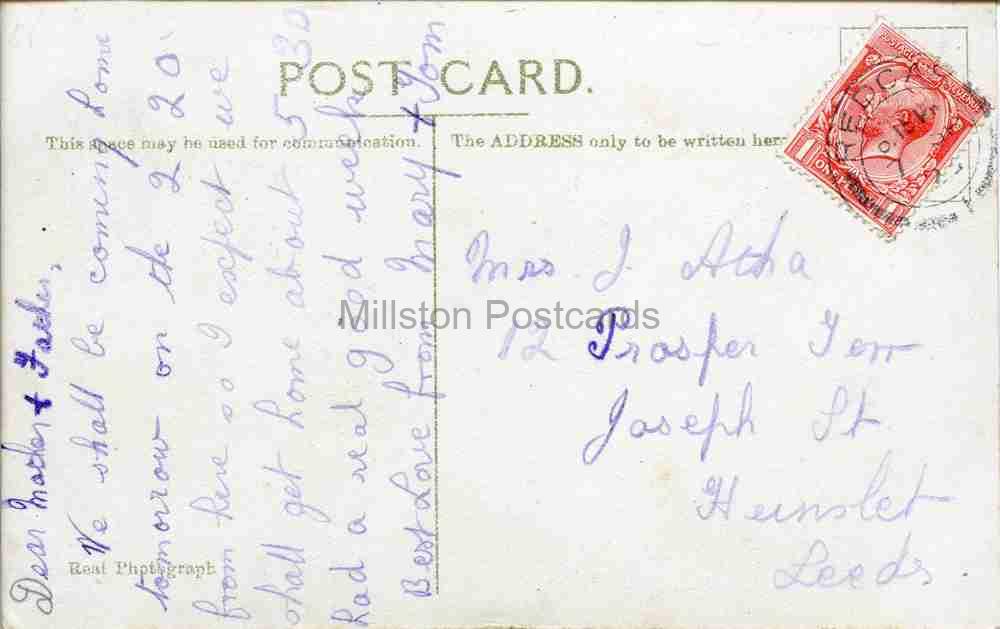 POST CARD.
This space may be used for communication.
The ADDRESS only to be written here
Dear Mother & Father,
We shall be coming home
tomorrow on the 2 20
from here so I expect we
shall get home about 5 30
had a real good week
Best Love from Mary & Tom
Mrs J. Atha
12 Prosper Terr
Joseph St
Hunslet
Leeds
Real Photograph
Millston Postcards